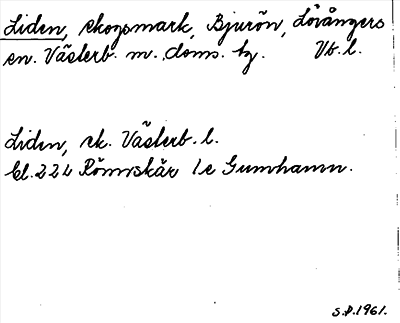 Liden, skogsmark, Bjurön, Lövångers
sn. Västerb. m. doms. tg. Vb. l.
Liden, sk. Västerb. l.
bl. 224 Rönnskär 1e Gumhamn.
S.P. 1961.